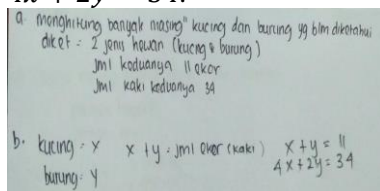 a. menghitung banyak masing" kucing dan burung yg blm diketahui
diket = 2 jenis hewan (kucing & burung)
jml keduanya 11 ekor
jml kaki keduanya 34
b. kucing = x x + y = jml ekor (kaki) x + y = 11
burung = y 4x + 2y = 34